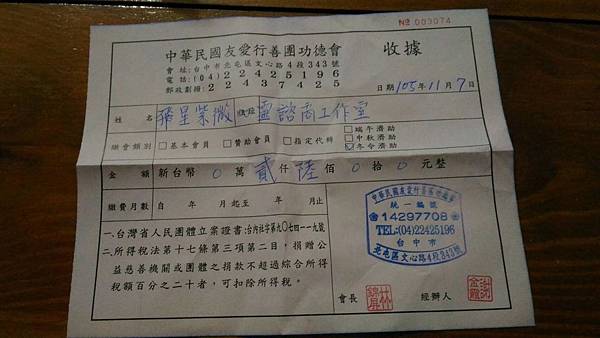 № 003074
中華民國友愛行善團功德會 收據
會址:台中市北屯區文心路4段343號
電話:(04)22425196
郵政劃撥:22437425
日期105年11月7日
姓名 飛星紫微 靈諮商工作室
繳會類別 □基本會員 □贊助會員 □指定代辦
□端午濟助
□中秋濟助
☑冬令濟助
金額 新台幣 0 萬 貳 仟 陸 佰 0 拾 0 元整
繳費月數 自 年 月起至 年 月止
一、台灣省人民團體立案證書:台內社字第九〇七四一一九號
二、所得稅法第十七條第三項第二目,捐贈公
益慈善機關或團體之捐款不超過綜合所得
稅額百分之二十者,可扣除所得稅。
中華民國友愛行善團功德會
統一編號
14297708
TEL:(04)22425196
台中市
北屯區文心路4段343號
會長 經辦人